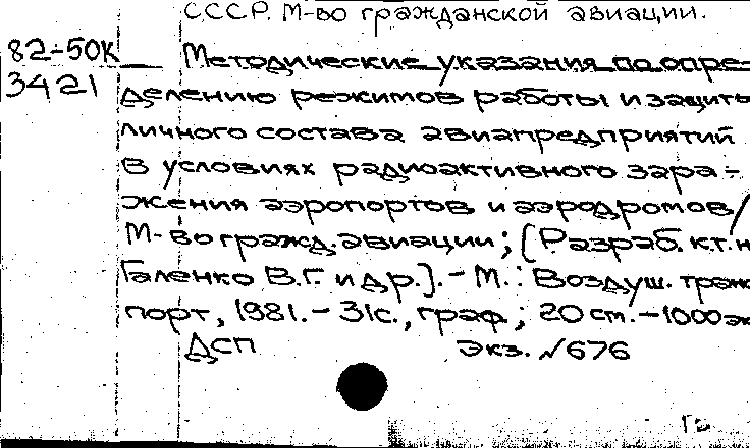 СССР. М-во гражданской авиации.
82-50К Методические указания по опре-
3421 делению режимов работы и защиты
личного состава авиапредприятий
в условиях радиоактивного зара-
жения аэропортов и аэродромов/
М-во гражд. авиации; [Разраб. к.т.н
Галенко В.Г. и др.]. - М.: Воздуш. транс
порт, 1981. - 31с., граф; 20 см. - 1000 эк
ДСП Экз. №676